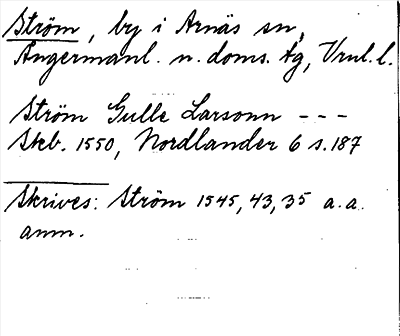 Ström, by i Arnäs sn,
Ångermanl. n. doms. tg, Vrnl. l.
Ström Gulle Larsonn ---
Skb. 1550, Nordlander 6 s. 187
Skrives: Ström 1545, 43, 35 a. a.
anm.